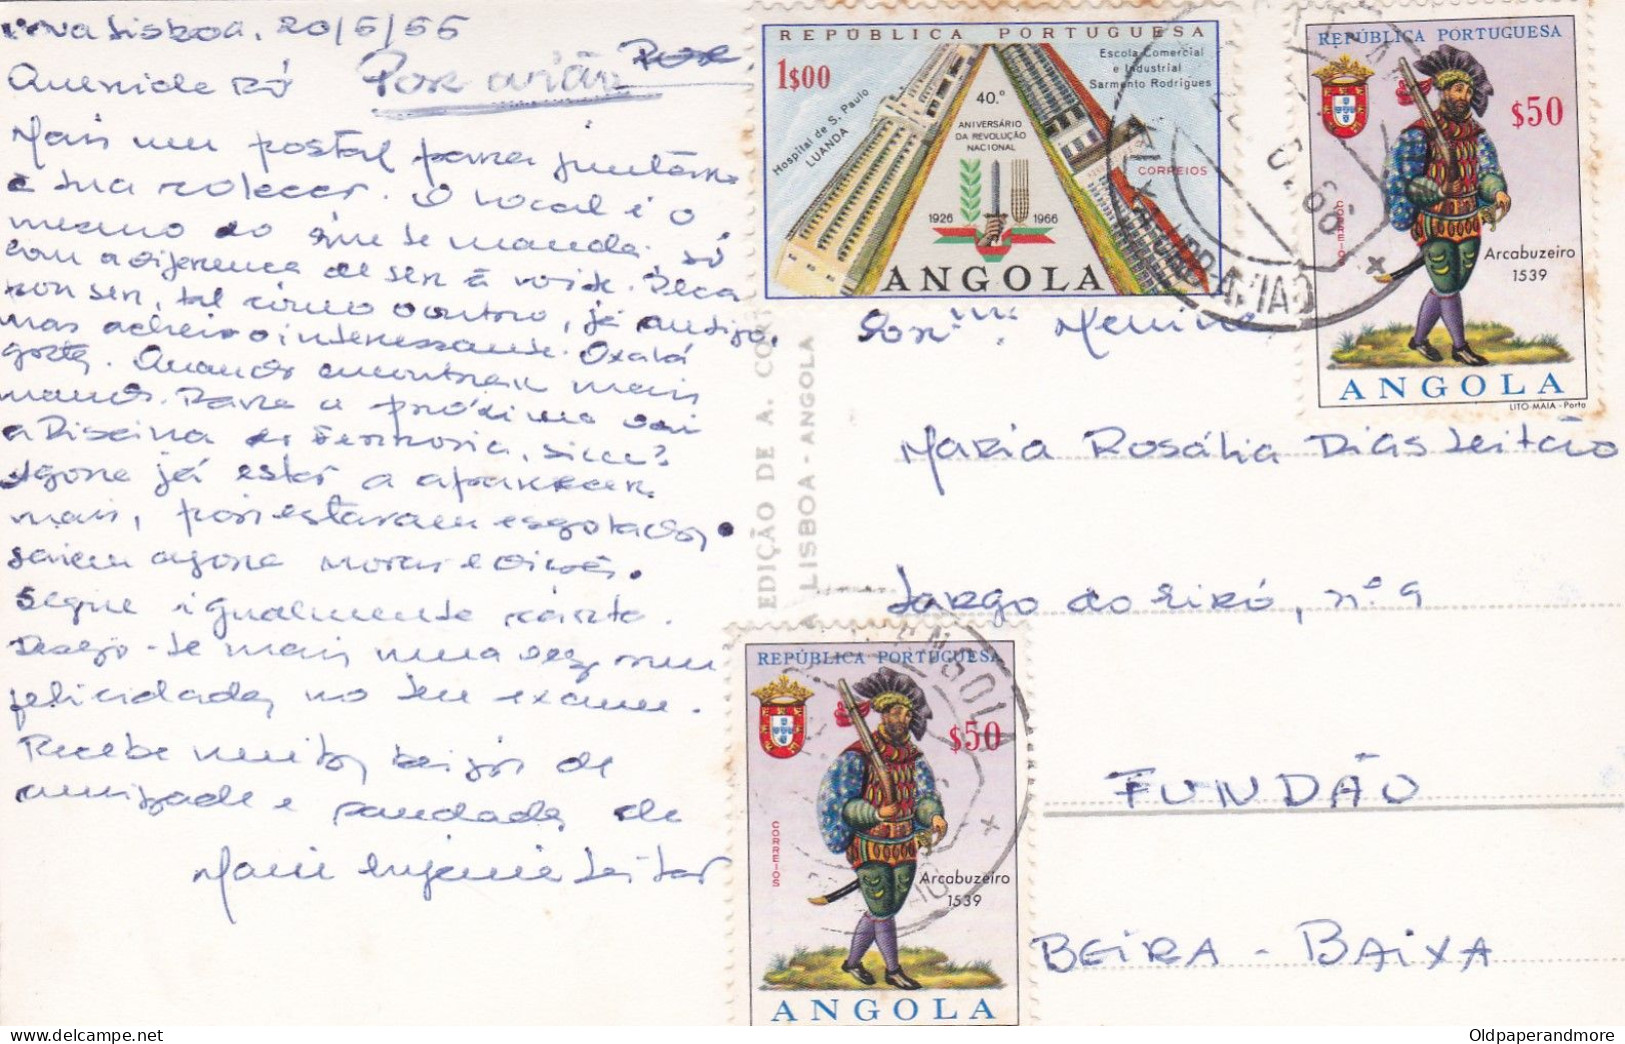 Nova Lisboa, 20/5/66
Querida Ró Por avião Por
Mais um postal para juntares
à sua colecção. O local é o
mesmo do que se manda, só
com a diferença de ser à noite.
tal como o outro, já antigo,
mas achei-o interessante. Oxalá
gostes. Quando encontrar mais
mando. Para a próxima vai
a Piscina da Ferrovia, sim?
Agora já estão a aparecer
mais, pois estavam esgotados,
saem agora novas edições.
Segue igualmente carta.
Desejo-te mais uma vez
felicidades no teu exame.
Recebe muitos beijos de
amizade e saudades de
Maria Eugénia Leitão
EDIÇÃO DE A.
LISBOA - ANGOLA
REPÚBLICA PORTUGUESA
1$00
Hospital de S. Paulo
LUANDA
40.º
ANIVERSÁRIO
DA REVOLUÇÃO
NACIONAL
1926 1966
Escola Comercial
e Industrial
Sarmento Rodrigues
CORREIOS
ANGOLA
REPÚBLICA PORTUGUESA
$50
CORREIOS
Arcabuzeiro
1539
ANGOLA
LITO-MAIA-Porto
Menina
Maria Rosália Dias Leitão
Largo do Eiró, nº 9
FUNDÃO
BEIRA-BAIXA
REPÚBLICA PORTUGUESA
$50
CORREIOS
Arcabuzeiro
1539
ANGOLA
Oldpaperandmore